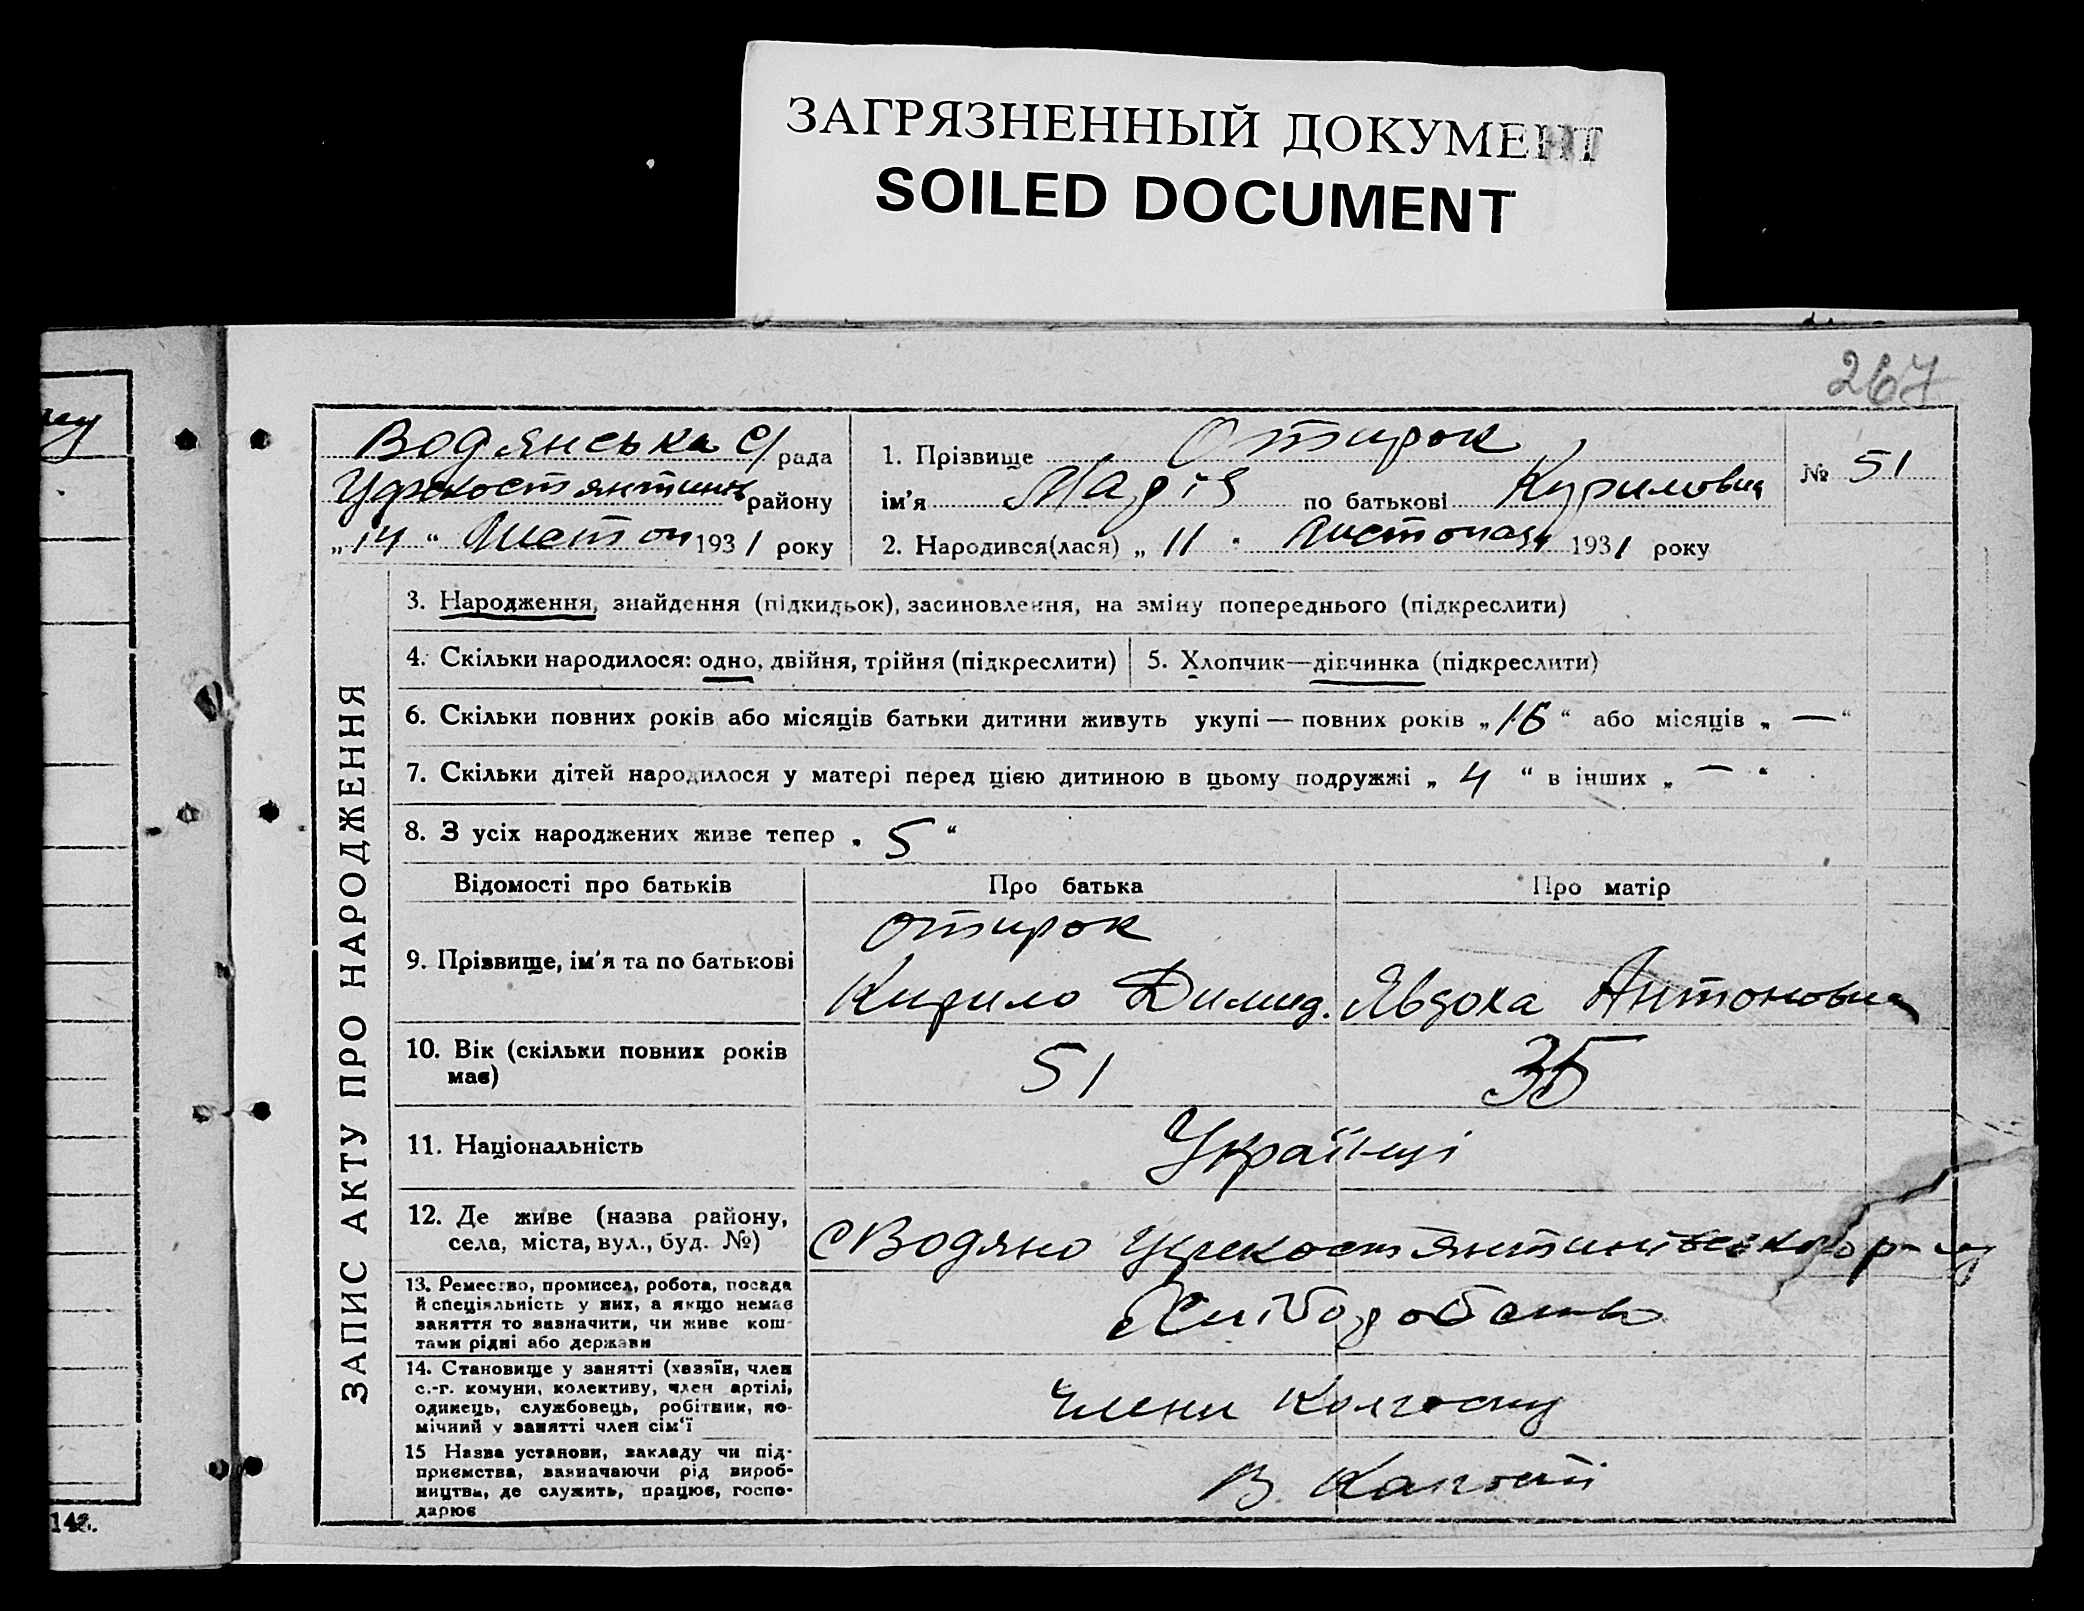 ЗАГРЯЗНЕННЫЙ ДОКУМЕНТ
SOILED DOCUMENT
267
Водянська с/рада
района
„14“ Листоп 1931 року
1. Прізвище Отирок
ім'я Марія по батькові Кириловна
2. Народився(лася) „11" Листопада 1931 року
№ 51
3. Народження, знайдення (підкидьок), засиновлення, на зміну попереднього (підкреслити)
4. Скільки народилося: одно, двійня, трійня (підкреслити)
5. Хлопчик—дівчинка (підкреслити)
6. Скільки повних років або місяців батьки дитини живуть укупі — повних років „16“ або місяців „—“
7. Скільки дітей народилося у матері перед цією дитиною в цьому подружжі „4“ в інших „—“
8. З усіх народжених живе тепер „5“
ЗАПИС АКТУ ПРО НАРОДЖЕННЯ
Відомості про батьків
Про батька
Про матір
9. Прізвище, ім'я та по батькові
Отирок
Кирило Димид.
Явдоха Антоновна
10. Вік (скільки повних років
має)
51
35
11. Національність
Українці
12. Де живе (назва району,
села, міста, вул., буд. №)
с Водяно
13. Ремество, промисел, робота, посада
й спеціяльність у них, а якщо немає
заняття то зазначити, чи живе кош-
тами рідні або держави
Хліборобство
14. Становище у занятті (хазяїн, член
с.-г. комуни, колективу, член артілі,
одинець, службовець, робітник, по-
мічний у занятті член сім'ї
Члени Колгоспу
15 Назва установи, закладу чи під-
приємства, зазначаючи рід вироб-
ництва, де служить, працює, госпо-
дарює
В
142.